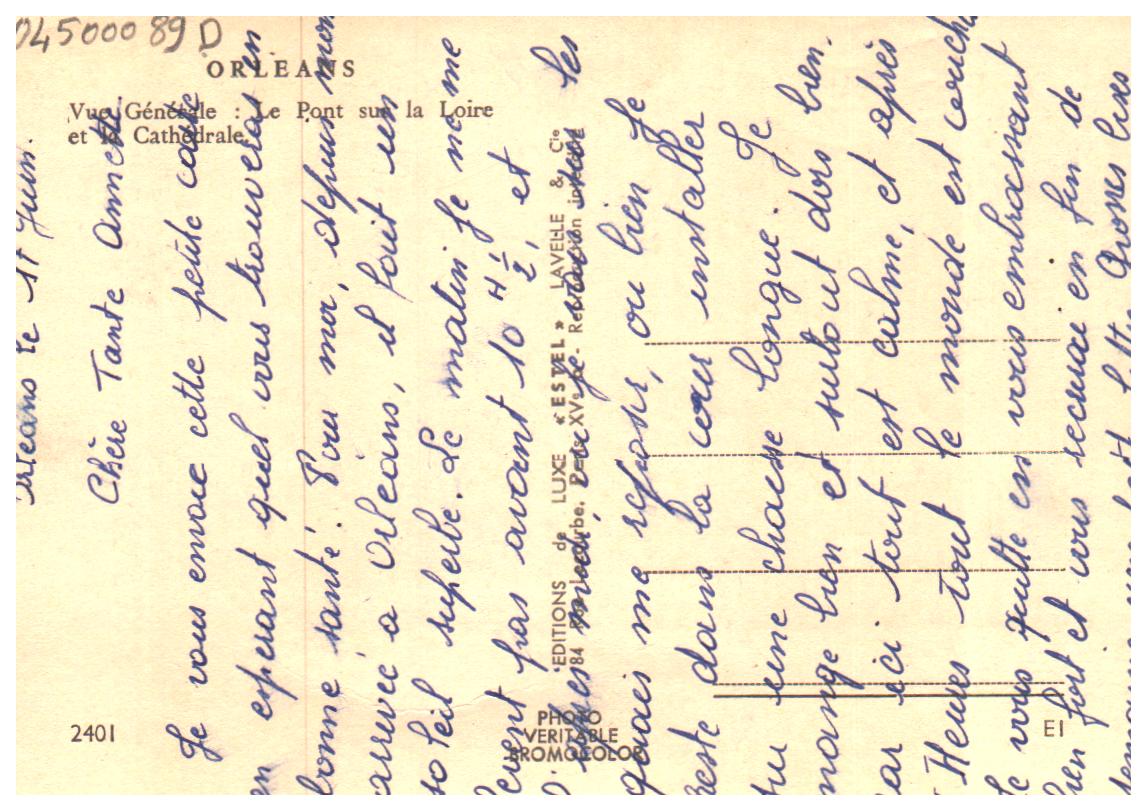 04500089 D
ORLEANS
Vue Générale : Le Pont sur la Loire
et la Cathédrale.
2401
EDITIONS de LUXE « ESTEL » LAVELLE & Cie
84 Rue Lecourbe. Paris XVe - Reproduction interdite
PHOTO
VERITABLE
BROMOCOLOR
E1
Orleans le 17 Juin.
Chère Tante Annette.
Je vous envoie cette petite carte
en esperant quel vous trouveras en
bonne santé. Pour moi, depuis mon
arrivée a Orleans, il fait un
soleil superbe. Le matin je ne me
pas avant 10 H ½, et les
apres midi,
vais me refair, ou bien je
reste dans la cour installer
une chaise longue. Je
mange bien et surtout dors bien.
car ici tout est calme, et après
Heures tout le monde est couch
Je vous quitte en vous embrassant
bien fort et vous recevrai en fin de
Grosses bises